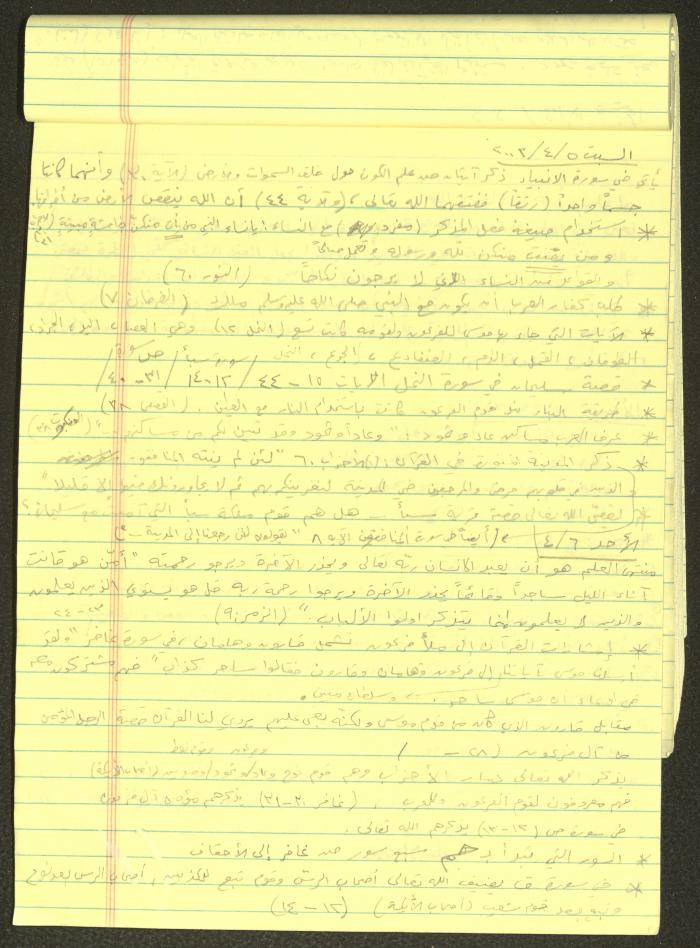 السبت ٥/٤/٢٠٠٣
يأتي في سورة الانبياء ذكر آيتان من علم الكون حول خلق السموات والأرض (الآية ٣٠) وأنهما كانتا
جسماً واحداً (رتقاً) ففتقهما الله تعالى، (والآية ٤٤) أن الله ينقص الأرض من أطرافها
* استخدام صيغة فعل المذكر (مفرد) مع النساء: يانساء النبي من يأت منكن بفاحشة مبينة
ومن يقنت منكن لله ورسوله وتعمل صالحاً
والقواعد من النساء اللاتي لا يرجون نكاحاً (النور ٦٠)
* طلب كفار العرب أن يكون مع النبي صلى الله عليه وسلم ملاك (الفرقان ٧)
* الآيات التي جاء بها موسى للفرعون ولقومه كانت تسع (النمل ١٢) وهي العصا، اليد، الجراد،
الطوفان، القمل، الدم، الضفادع، الجوع،
* قصة سليمان في سورة النمل الآيات ١٥ - ٤٤ / سورة سبأ ١٢-١٤ / سورة ص ٣١-٤٠ /
* طريقة البناء عند قوم الفرعون كانت باستخدام النار مع الطين. (القصص ٣٨)
* عرف العرب مساكن عاد وثمود: "وعاداً وثمود وقد تبين لكم من مساكنهم" (العنكبوت ٣٨)
* ذكر المدينة المنورة في القرآن: الأحزاب ٦٠ "لئن لم ينته المنافقون
والذين في قلوبهم مرض والمرجفون في المدينة لنغرينك بهم ثم لا يجاورونك فيها إلا قليلا"
* قصة سبأ - هل هم قوم ملكة سبأ التي مع سليمان؟
الأحد ٦/٤ (أيضاً في سورة المنافقون الآية ٨ "يقولون لئن رجعنا إلى المدينة - "
منتهى العلم هو أن يعبد الإنسان ربه تعالى ويحذر الآخرة ويرجو رحمته "أمّن هو قانت
آناء الليل ساجداً وقائماً يحذر الآخرة ويرجوا رحمة ربه قل هو يستوي الذين يعلمون
والذين لا يعلمون إنما يتذكر اولوا الألباب." (الزمر: ٩)
٢٣-٢٤
* إشارات القرآن إلى ملأ فرعون تشمل قارون وهامان، في سورة غافر "ولقد
أرسلنا موسى بآياتنا إلى فرعون وهامان وقارون فقالوا ساحر كذاب" فهم مشتركون معه
في ادعاء أن موسى ساحر. وسلطان مبين
مقابل قارون الذي كان من قوم موسى ولكنه بغى عليهم يروي لنا القرآن قصة الرجل المؤمن
من آل فرعون (٢٨ - )
يذكر الله تعالى الأحزاب وهم قوم نوح وعاد وثمود (أصحاب الأيكة)
فهم معروفون لقوم الفرعون وللعرب. (غافر ٣٠-٣١) يذكرهم مؤمن آل فرعون
في سورة ص (١٢-١٣) يذكرهم الله تعالى.
* السور التي تبدأ بـ حم سبع سور من غافر إلى الأحقاف
* في سورة ق يضيف الله تعالى أصحاب الرس وقوم تبع للمكذبين، أصحاب الرس بعد نوح
وتبع بعد قوم شعيب (أصحاب الأيكة) (١٢-١٤)